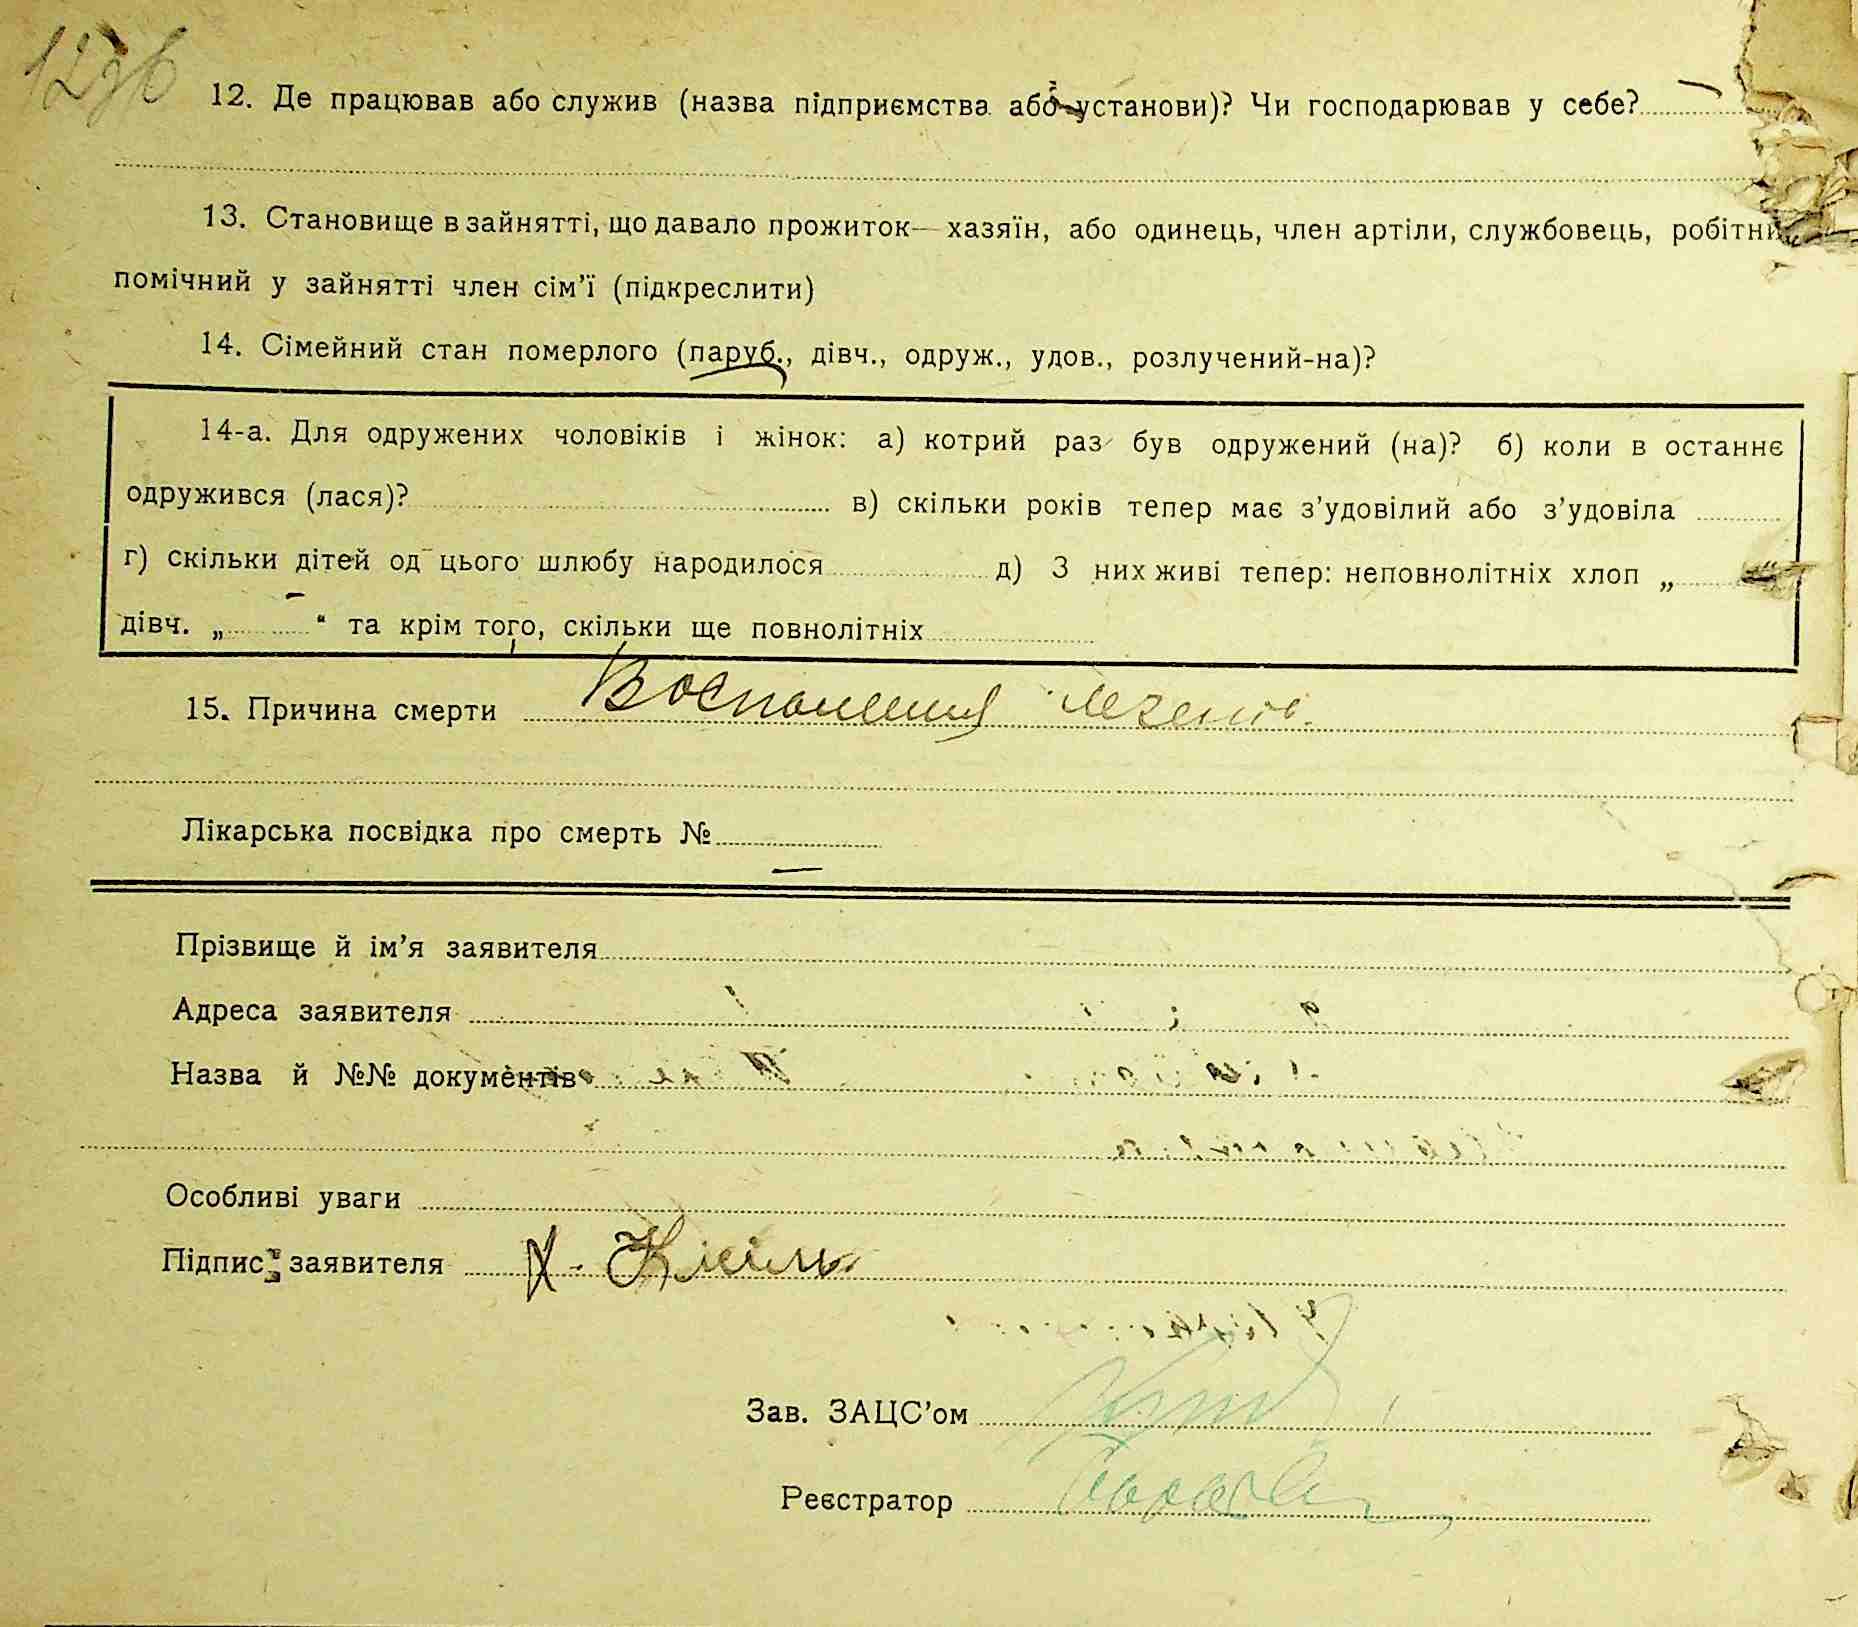 12. Де працював або служив (назва підприємства або установи)? Чи господарював у себе?
13. Становище в зайнятті, що давало прожиток — хазяїн, або одинець, член артіли, службовець, робітни
помічний у зайнятті член сім’ї (підкреслити)
14. Сімейний стан померлого (паруб., дівч., одруж., удов., розлучений-на)?
14-а. Для одружених чоловіків і жінок: а) котрий раз був одружений (на)? б) коли в останнє
одружився (лася)? в) скільки років тепер має з’удовілий або з’удовіла
г) скільки дітей од цього шлюбу народилося д) З них живі тепер: неповнолітніх хлоп „ “
дівч. „ “ та крім того, скільки ще повнолітніх
15. Причина смерти Воспаления
Лікарська посвідка про смерть № —
Прізвище й ім’я заявителя
Адреса заявителя
Назва й №№ документів
Особливі уваги
Підпис заявителя
Зав. ЗАЦС’ом
Реєстратор